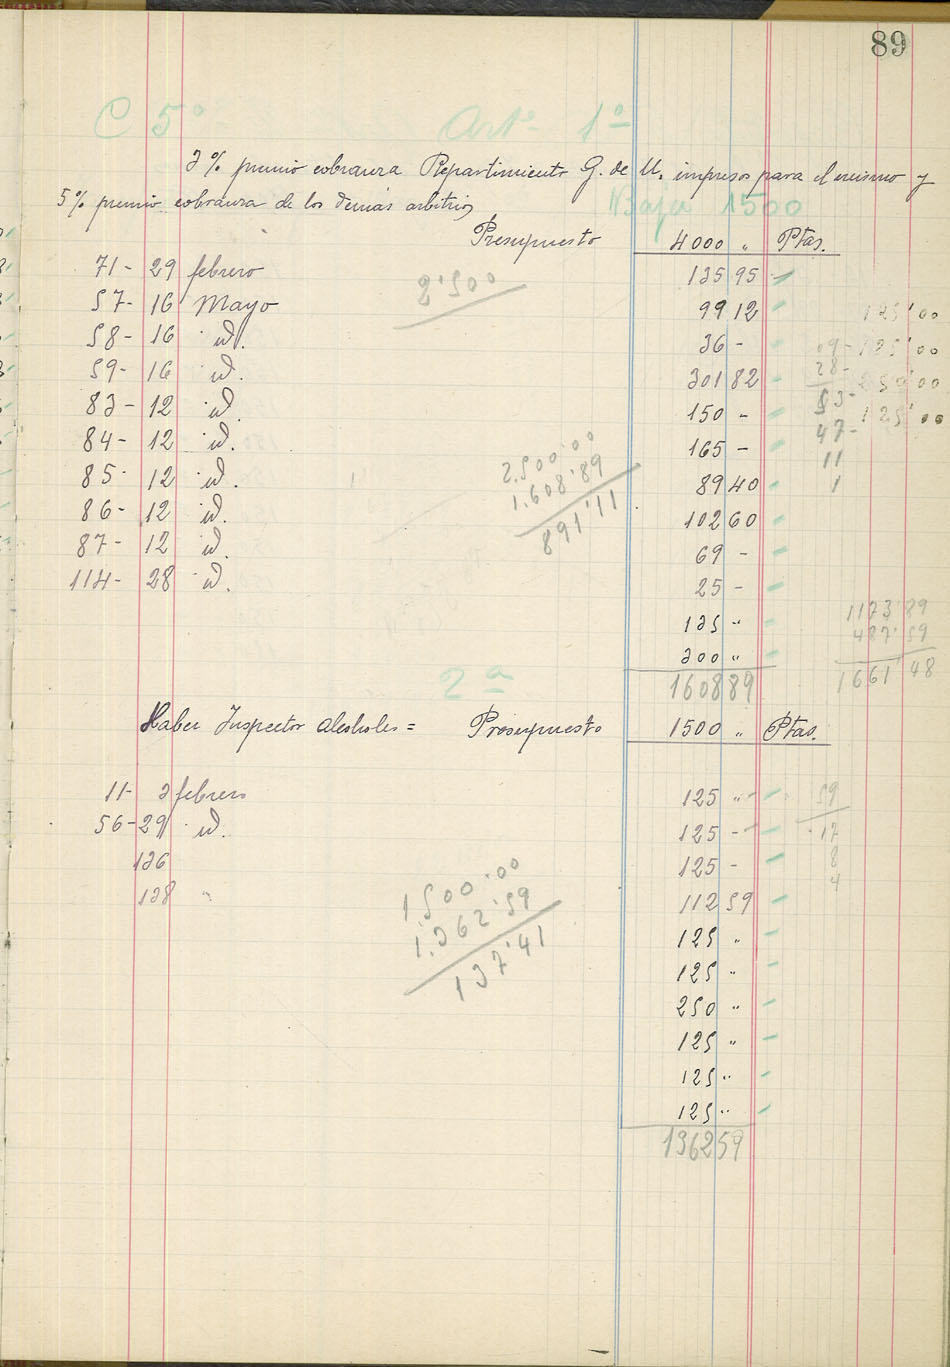 89
C 5º Artº 1º
3% premio cobranza Repartimiento G. de U. impresos para el mismo y
5% premio cobranza de los demás arbitrios
Baja 1500
Presupuesto 4000 " Ptas.
71- 29 febrero 135 95
2'500
57- 16 Mayo 99 12
125'00
58- 16 id. 36 -
125'00
59- 16 id. 301 82
250'00
83- 12 id. 150 -
125'00
84- 12 id. 165 -
47-
11
1
85- 12 id. 89 40
2.500'00
1.608'89
891'11
86- 12 id. 102 60
87- 12 id. 69 -
114- 28 id. 25 -
135 "
300 "
1173'89
487'59
1661'48
1608 89
2ª
Haber Inspector alcoholes = Presupuesto 1500 " Ptas.
11- 3 febrero 125 "
59
17
8
4
56- 29 id. 125 -
136 125 -
138 " 112 59
1.500'00
1.362'59
137'41
125 "
125 "
250 "
125 "
125 "
125 "
1362 59